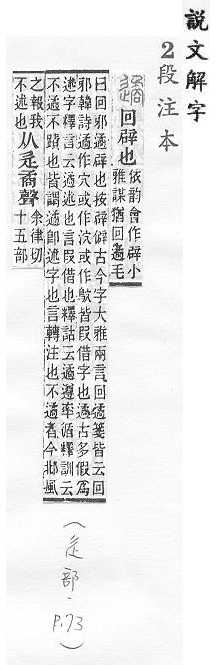 說文解字
2段注本
遹
回辟也
依韵會作辟小
雅謀猶回遹毛
曰回邪遹辟也按辟僻古今字大雅兩言回遹箋皆云回
邪韓詩遹作穴或作泬或作欥皆叚借字也遹古多假爲
述字釋言云遹述也言叚借也釋詁云遹遵率循釋訓云
不遹不蹟也皆謂遹卽述字也言轉注也不遹者今邶風
之報我
不述也
从辵矞聲
余律切
十五部
(辵部, P.73)